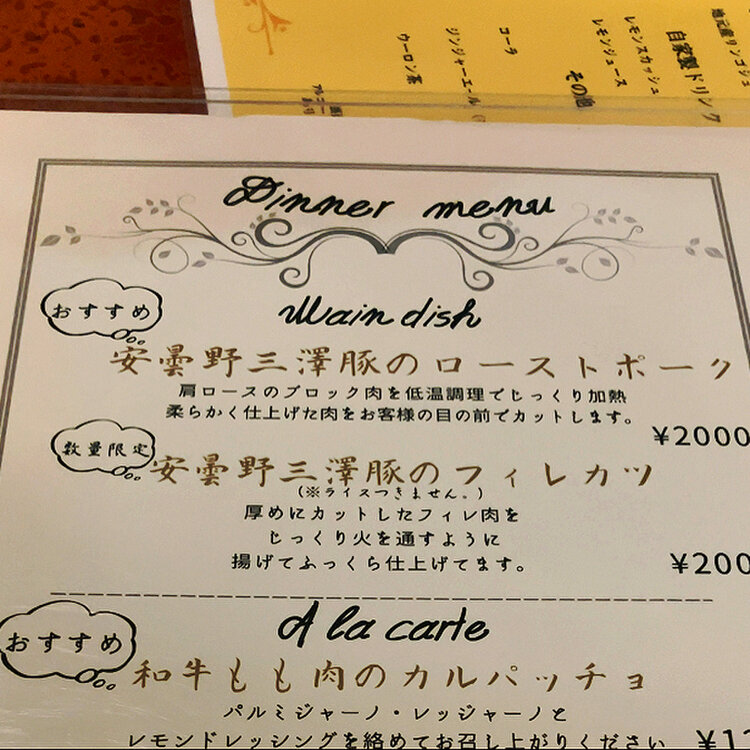 地元産リンゴジュ
自家製ドリンク
レモンスカッシュ
レモンジュース
その他
コーラ
ジンジャーエール
ウーロン茶
Dinner menu
おすすめ
Main dish
安曇野三澤豚のローストポーク
肩ロースのブロック肉を低温調理でじっくり加熱
柔らかく仕上げた肉をお客様の目の前でカットします。
¥2000
数量限定
安曇野三澤豚のフィレカツ
(※ライスつきません。)
厚めにカットしたフィレ肉を
じっくり火を通すように
揚げてふっくら仕上げてます。
¥200
A la carte
おすすめ
和牛もも肉のカルパッチョ
パルミジャーノ・レッジャーノと
レモンドレッシングを絡めてお召し上がりください